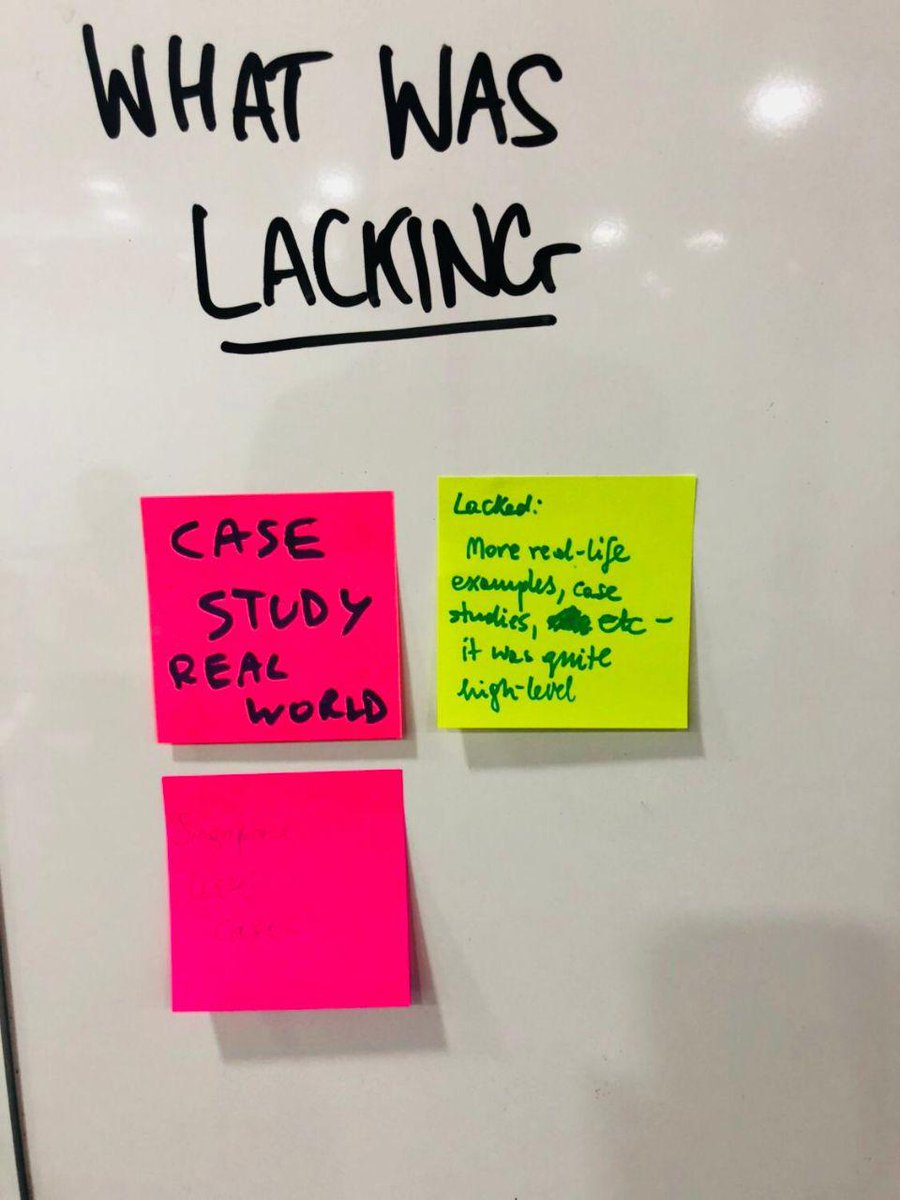 WHAT WAS
LACKING
CASE
STUDY
REAL
WORLD
Lacked:
More real-life
examples, case
studies, etc –
it was quite
high-level
use
cases